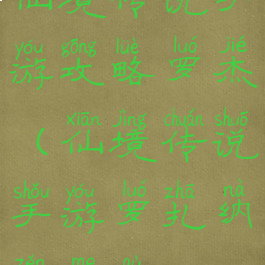 仙境传说手
yóu gōng lüè luó jié
游攻略罗杰
xiān jìng chuán shuō
（仙境传说
shǒu yóu luó zhā nà
手游罗扎纳
zěn me